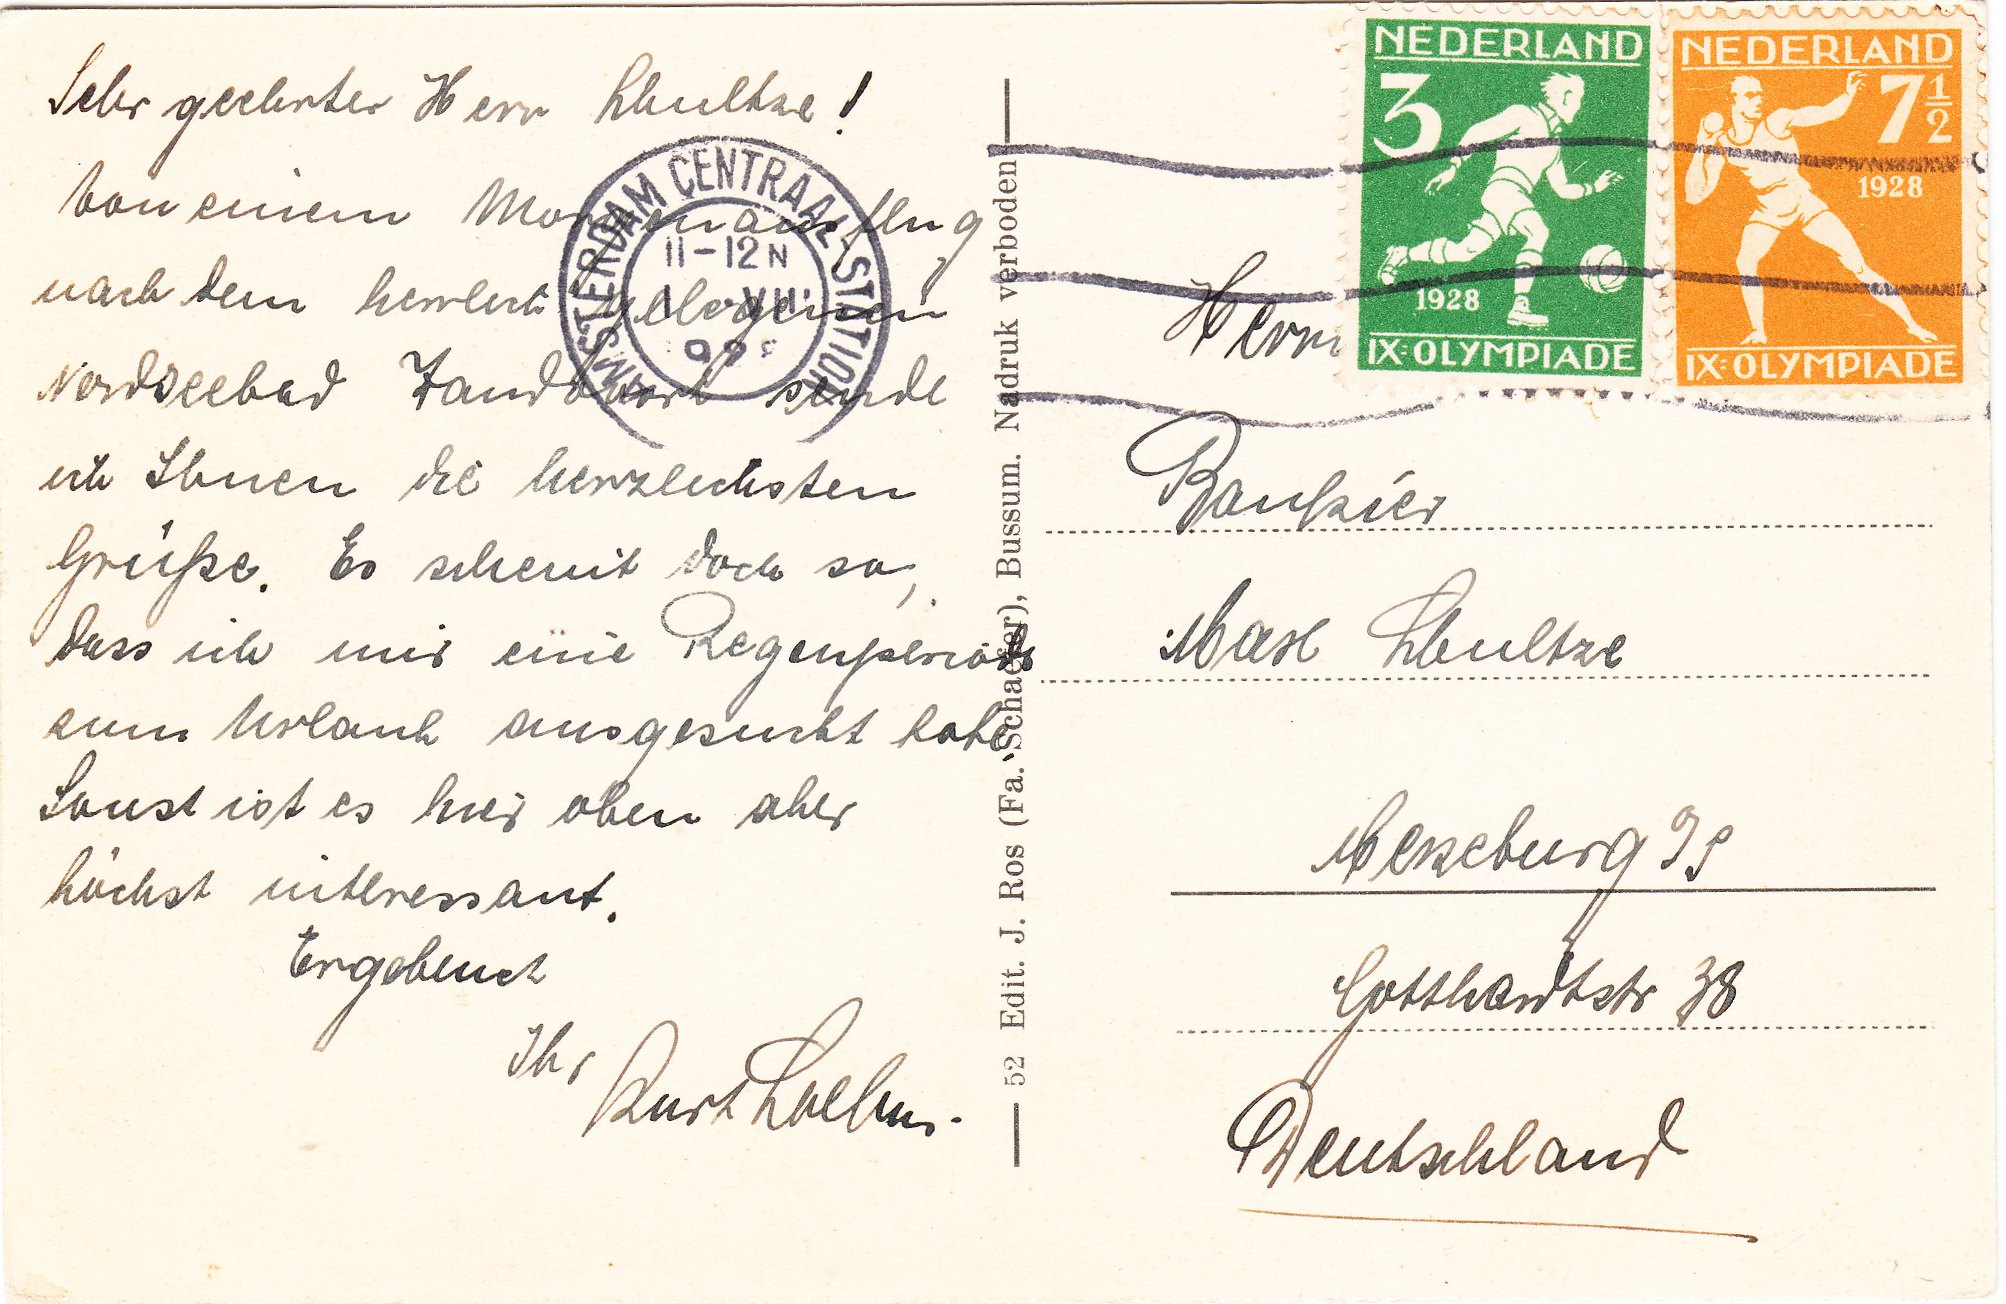 Sehr geehrter Herr Schultze!
Von einem Morgenausflug
nach dem herrlich gelegenen
Nordseebad Zandvoort sende
ich Ihnen die herzlichsten
Grüße. Es scheint doch so,
dass ich mir eine Regenperiode
zum Urlaub ausgesucht habe.
Sonst ist es hier oben aber
höchst interessant.
Ergebenst
Ihr Kurt
AMSTERDAM CENTRAAL-STATION
11-12 N
VII
52 Edit. J. Ros (Fa. Schaefer), Bussum. Nadruk verboden
NEDERLAND
3
1928
IX: OLYMPIADE
NEDERLAND
7 1/2
1928
IX: OLYMPIADE
Herrn
Bankier
Max Schultze
Merseburg
Gotthardtstr 38
Deutschland